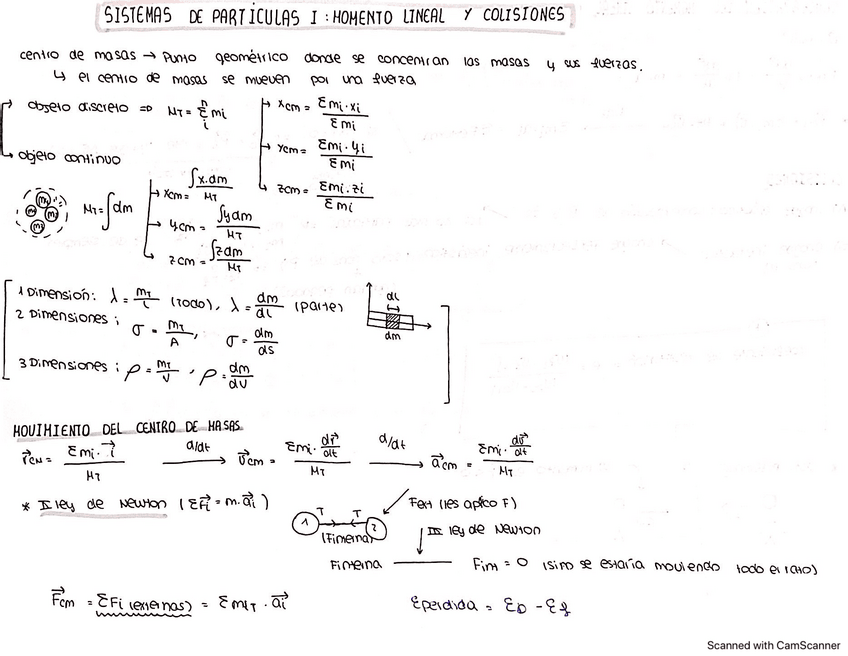 SISTEMAS DE PARTÍCULAS I : MOMENTO LINEAL Y COLISIONES
centro de masas → Punto geométrico donde se concentran las masas y sus fuerzas.
↳ el centro de masas se mueven por una fuerza
objeto discreto ⇒ M_T = Σ mi
n
i
xcm = Σmi·xi / Σmi
Ycm = Σmi·yi / Σmi
zcm = Σmi·zi / Σmi
objeto continuo
M_T = ∫dm
xcm = ∫x.dm / M_T
ycm = ∫ydm / M_T
zcm = ∫zdm / M_T
1 Dimensión: λ = m_T / L (todo), λ = dm / dl (parte)
2 Dimensiones ; σ = m_T / A, σ = dm / ds
3 Dimensiones ; ρ = m_T / V, ρ = dm / dV
dl
dm
MOVIMIENTO DEL CENTRO DE MASAS
r⃗cm = Σmi·i⃗ / M_T d/dt → v⃗cm = Σmi·dr⃗/dt / M_T d/dt → a⃗cm = Σmi·dv⃗/dt / M_T
* II ley de Newton (ΣF⃗i = m.a⃗i)
1 T T 2
(Finterna)
Fext (les aplico F)
III ley de Newton
Finterna —— Fint = 0 (sino se estaría moviendo todo el rato)
F⃗cm = ΣFi (externas) = Σm_T · a⃗i
Eperdida = E0 - Ef
Scanned with CamScanner